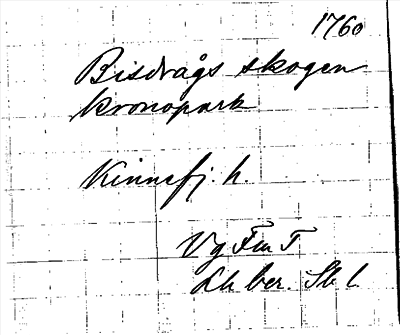 1760
Bisdrågs skogen
kronopark
Kinnefj. h.
Vg Fm T
Lh ber. Sk l.